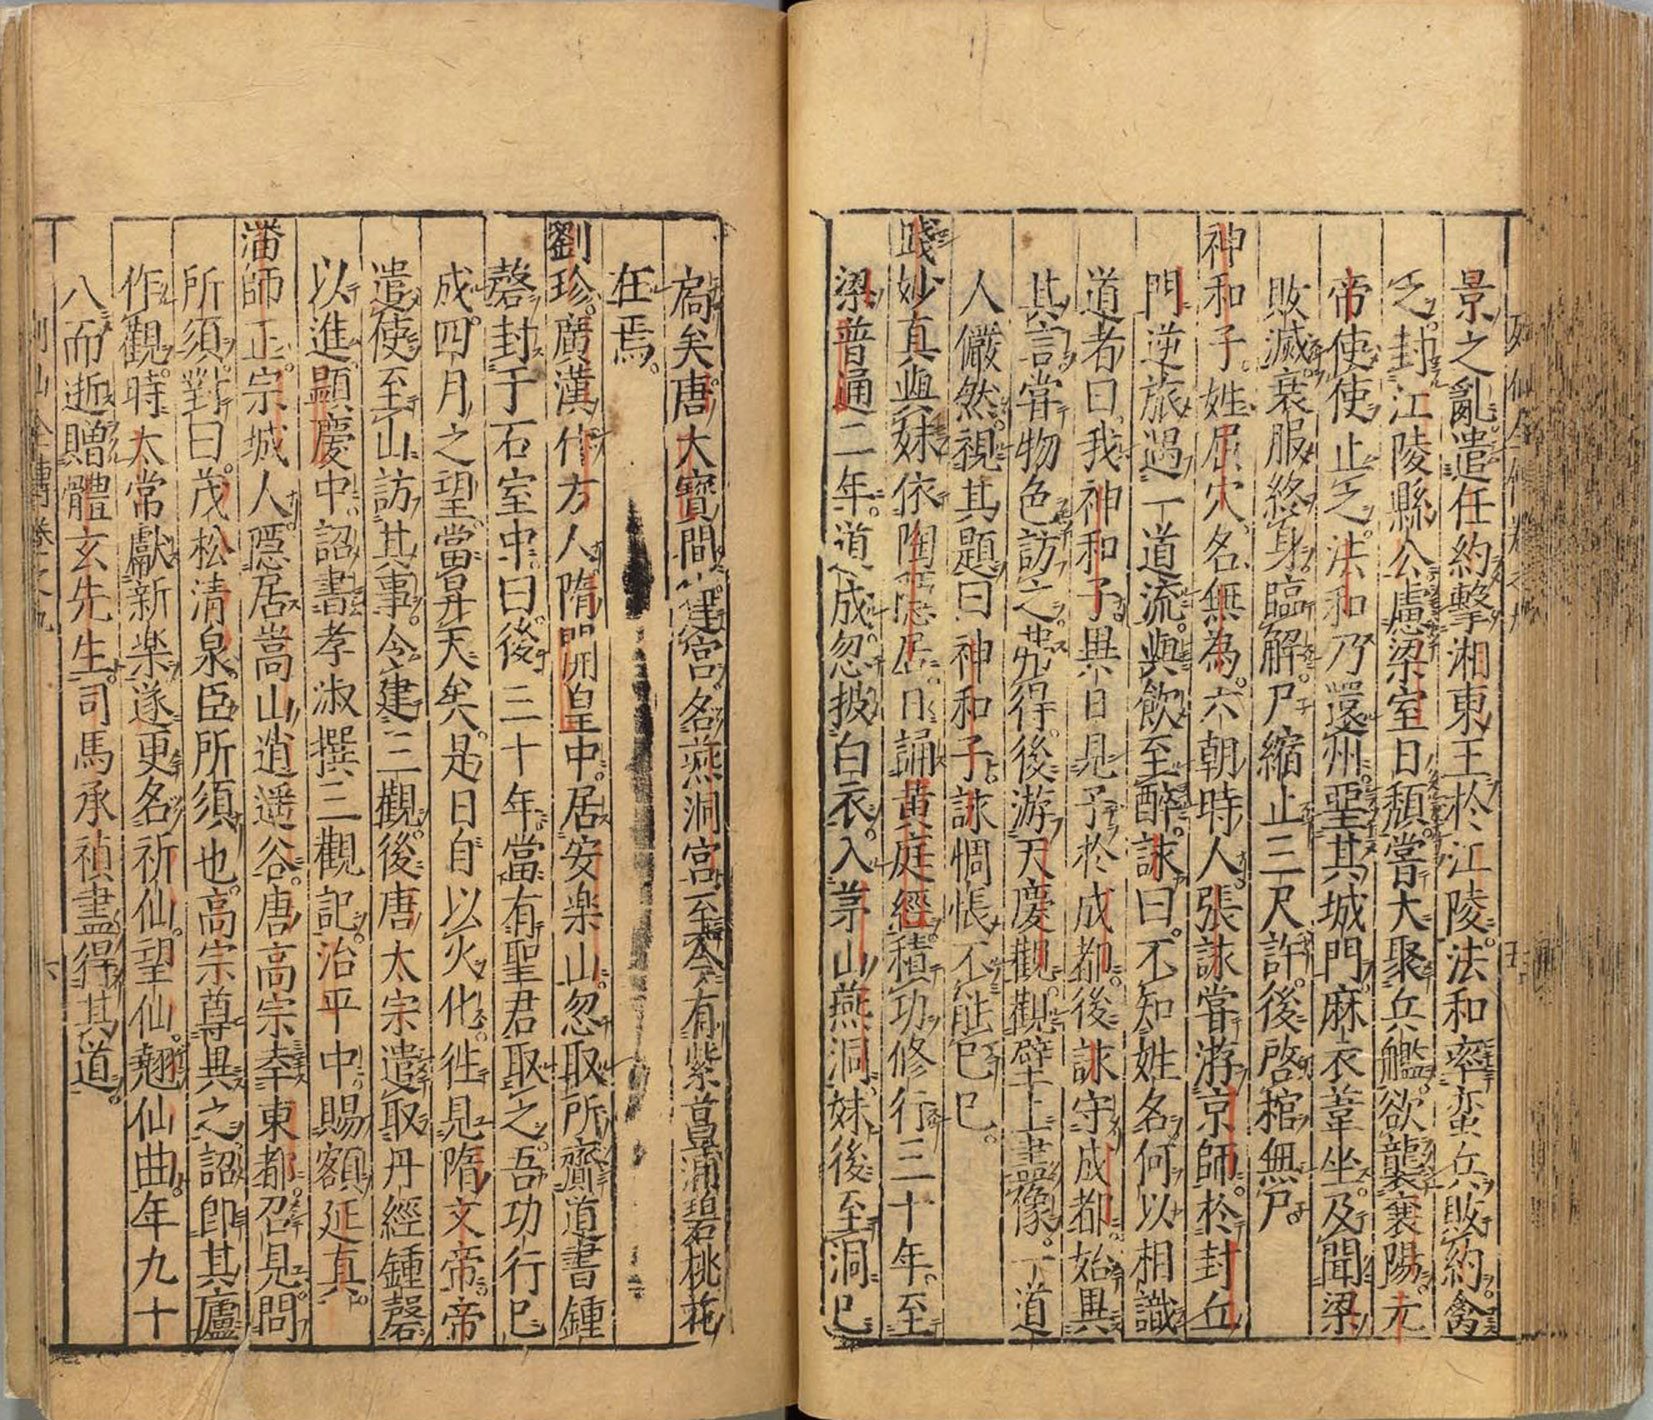 景之亂遣任約擊湘東王於江陵法和率蛮兵敗約禽
之封江陵縣公慮梁室日頽嘗大聚兵艦欲襲襄陽元
帝使使止之法和乃還州堊其城門麻衣葦坐及聞梁
敗滅衰服終身臨解尸縮止三尺許後啓棺無尸
神和子姓屈穴名無為六朝時人張詠嘗游京師於封丘
門逆旅遇一道流與飲至醉詠曰不知姓名何以相識
道者曰我神和子異日見予於成都後詠守成都始異
其言嘗物色訪之弗得後游天慶觀觀壁上畫像一道
人儼然視其題曰神和子詠惆悵不能已已
錢妙真與妹依陶隱居日誦黄庭經積功修行三十年至
梁普通二年道成忽披白衣入茅山燕洞妹後至洞已
扃矣唐大寶間建宮名燕洞宮至今有紫菖蒲碧桃花
在焉
劉珍廣漢什方人隋開皇中居安楽山忽取所齎道書鍾
磬封于石室中曰後三十年當有聖君取之吾功行已
成四月之望當昇天矣是日自以火化徃見隋文帝帝
遣使至山訪其事今建三觀後唐太宗遣取丹經鍾磬
以進顕慶中詔書孝淑撰三觀記治平中賜額延真
潘師正宗城人隠居嵩山逍遥谷唐高宗幸東都召見問
所須對曰茂松清泉臣所須也高宗尊異之詔即其廬
作觀時太常獻新楽遂更名祈仙望仙翹仙曲年九十
八而逝贈體玄先生司馬承禎盡得其道